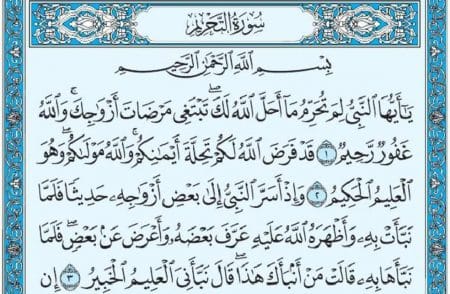 سُورَةُ التَّحْرِيمِ
بِسْمِ اللَّهِ الرَّحْمَٰنِ الرَّحِيمِ
يَا أَيُّهَا النَّبِيُّ لِمَ تُحَرِّمُ مَا أَحَلَّ اللَّهُ لَكَ ۖ تَبْتَغِي مَرْضَاتَ أَزْوَاجِكَ ۚ وَاللَّهُ
غَفُورٌ رَّحِيمٌ ١ قَدْ فَرَضَ اللَّهُ لَكُمْ تَحِلَّةَ أَيْمَانِكُمْ ۚ وَاللَّهُ مَوْلَاكُمْ ۖ وَهُوَ
الْعَلِيمُ الْحَكِيمُ ٢ وَإِذْ أَسَرَّ النَّبِيُّ إِلَىٰ بَعْضِ أَزْوَاجِهِ حَدِيثًا فَلَمَّا
نَبَّأَتْ بِهِ وَأَظْهَرَهُ اللَّهُ عَلَيْهِ عَرَّفَ بَعْضَهُ وَأَعْرَضَ عَن بَعْضٍ ۖ فَلَمَّا
نَبَّأَهَا بِهِ قَالَتْ مَنْ أَنبَأَكَ هَٰذَا ۖ قَالَ نَبَّأَنِيَ الْعَلِيمُ الْخَبِيرُ ٣ إِن